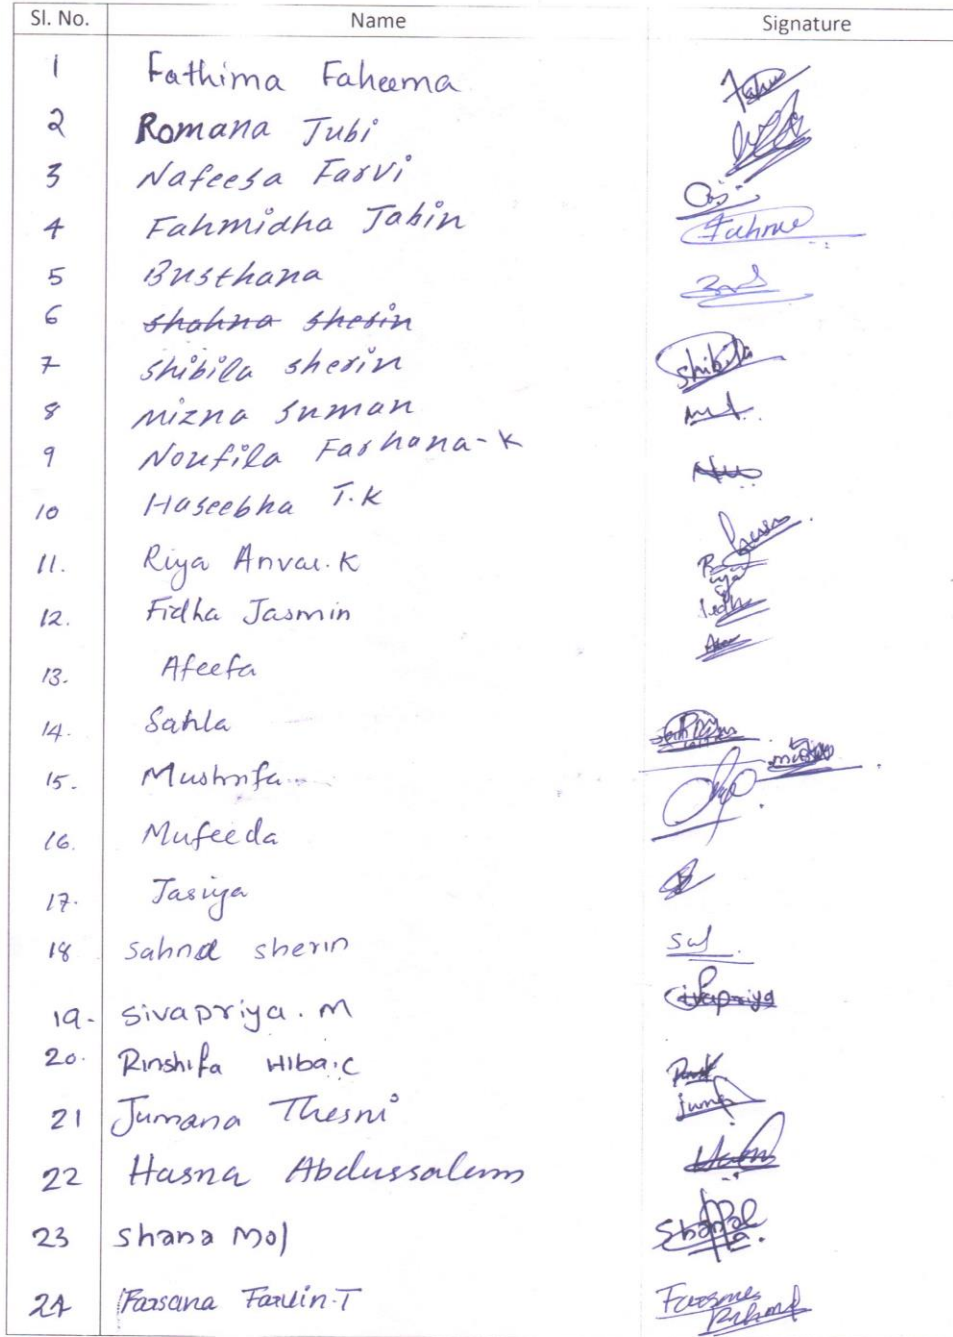 Sl. No. Name Signature
1 Fathima Faheema
2 Romana Jubi
3 Nafeesa Farvi
4 Fahmidha Jabin Fahme
5 Busthana
6 shahna sherin
7 shibila sherin Shibila
8 mizna suman
9 Noufila Farhana-K
10 Haseebha T.K
11. Riya Anvar.K Riya
12. Fidha Jasmin
13. Afeefa
14. Sahla
15. Mushrifa
16. Mufeeda
17. Jasiya
18 sahna sherin
19. sivapriya.M sivapriya
20. Rinshifa Hiba.C
21 Jumana Thesni
22 Hasna Abdussalam
23 shana mol
24 Farsana Farlin.T